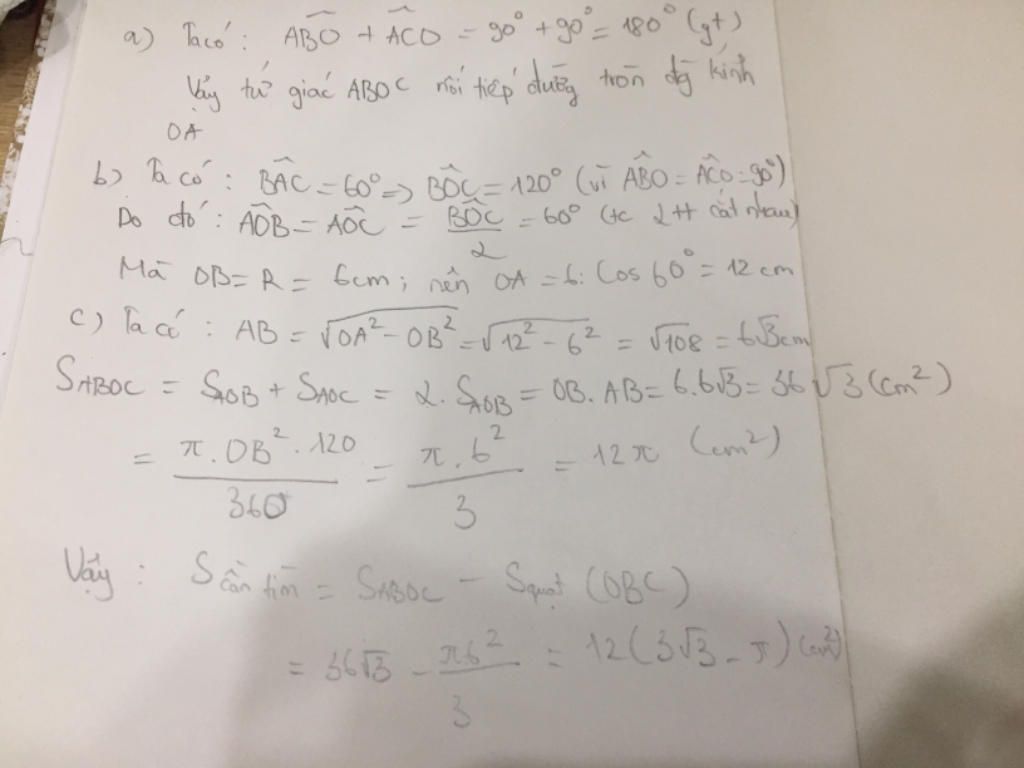 a) Ta có: ABO + ACO = 90° + 90° = 180° (gt)
Vậy tứ giác ABOC nội tiếp đường tròn đg kính
OA
b) Ta có: BAC = 60° => BOC = 120° (vì ABO = ACO = 90°)
Do đó: AOB = AOC = BOC/2 = 60° (tc 2tt cắt nhau)
Mà OB = R = 6cm; nên OA = 6: Cos 60° = 12 cm
c) Ta có: AB = √(OA² - OB²) = √(12² - 6²) = √108 = 6√3cm
SABOC = SAOB + SAOC = 2. SAOB = OB. AB = 6.6√3 = 36√3 (cm²)
= π.OB².120/360 = π.6²/3 = 12π (cm²)
Vậy: S cần tìm = SABOC - Squạt (OBC)
= 36√3 - π6²/3 = 12(3√3 - π) (cm²)